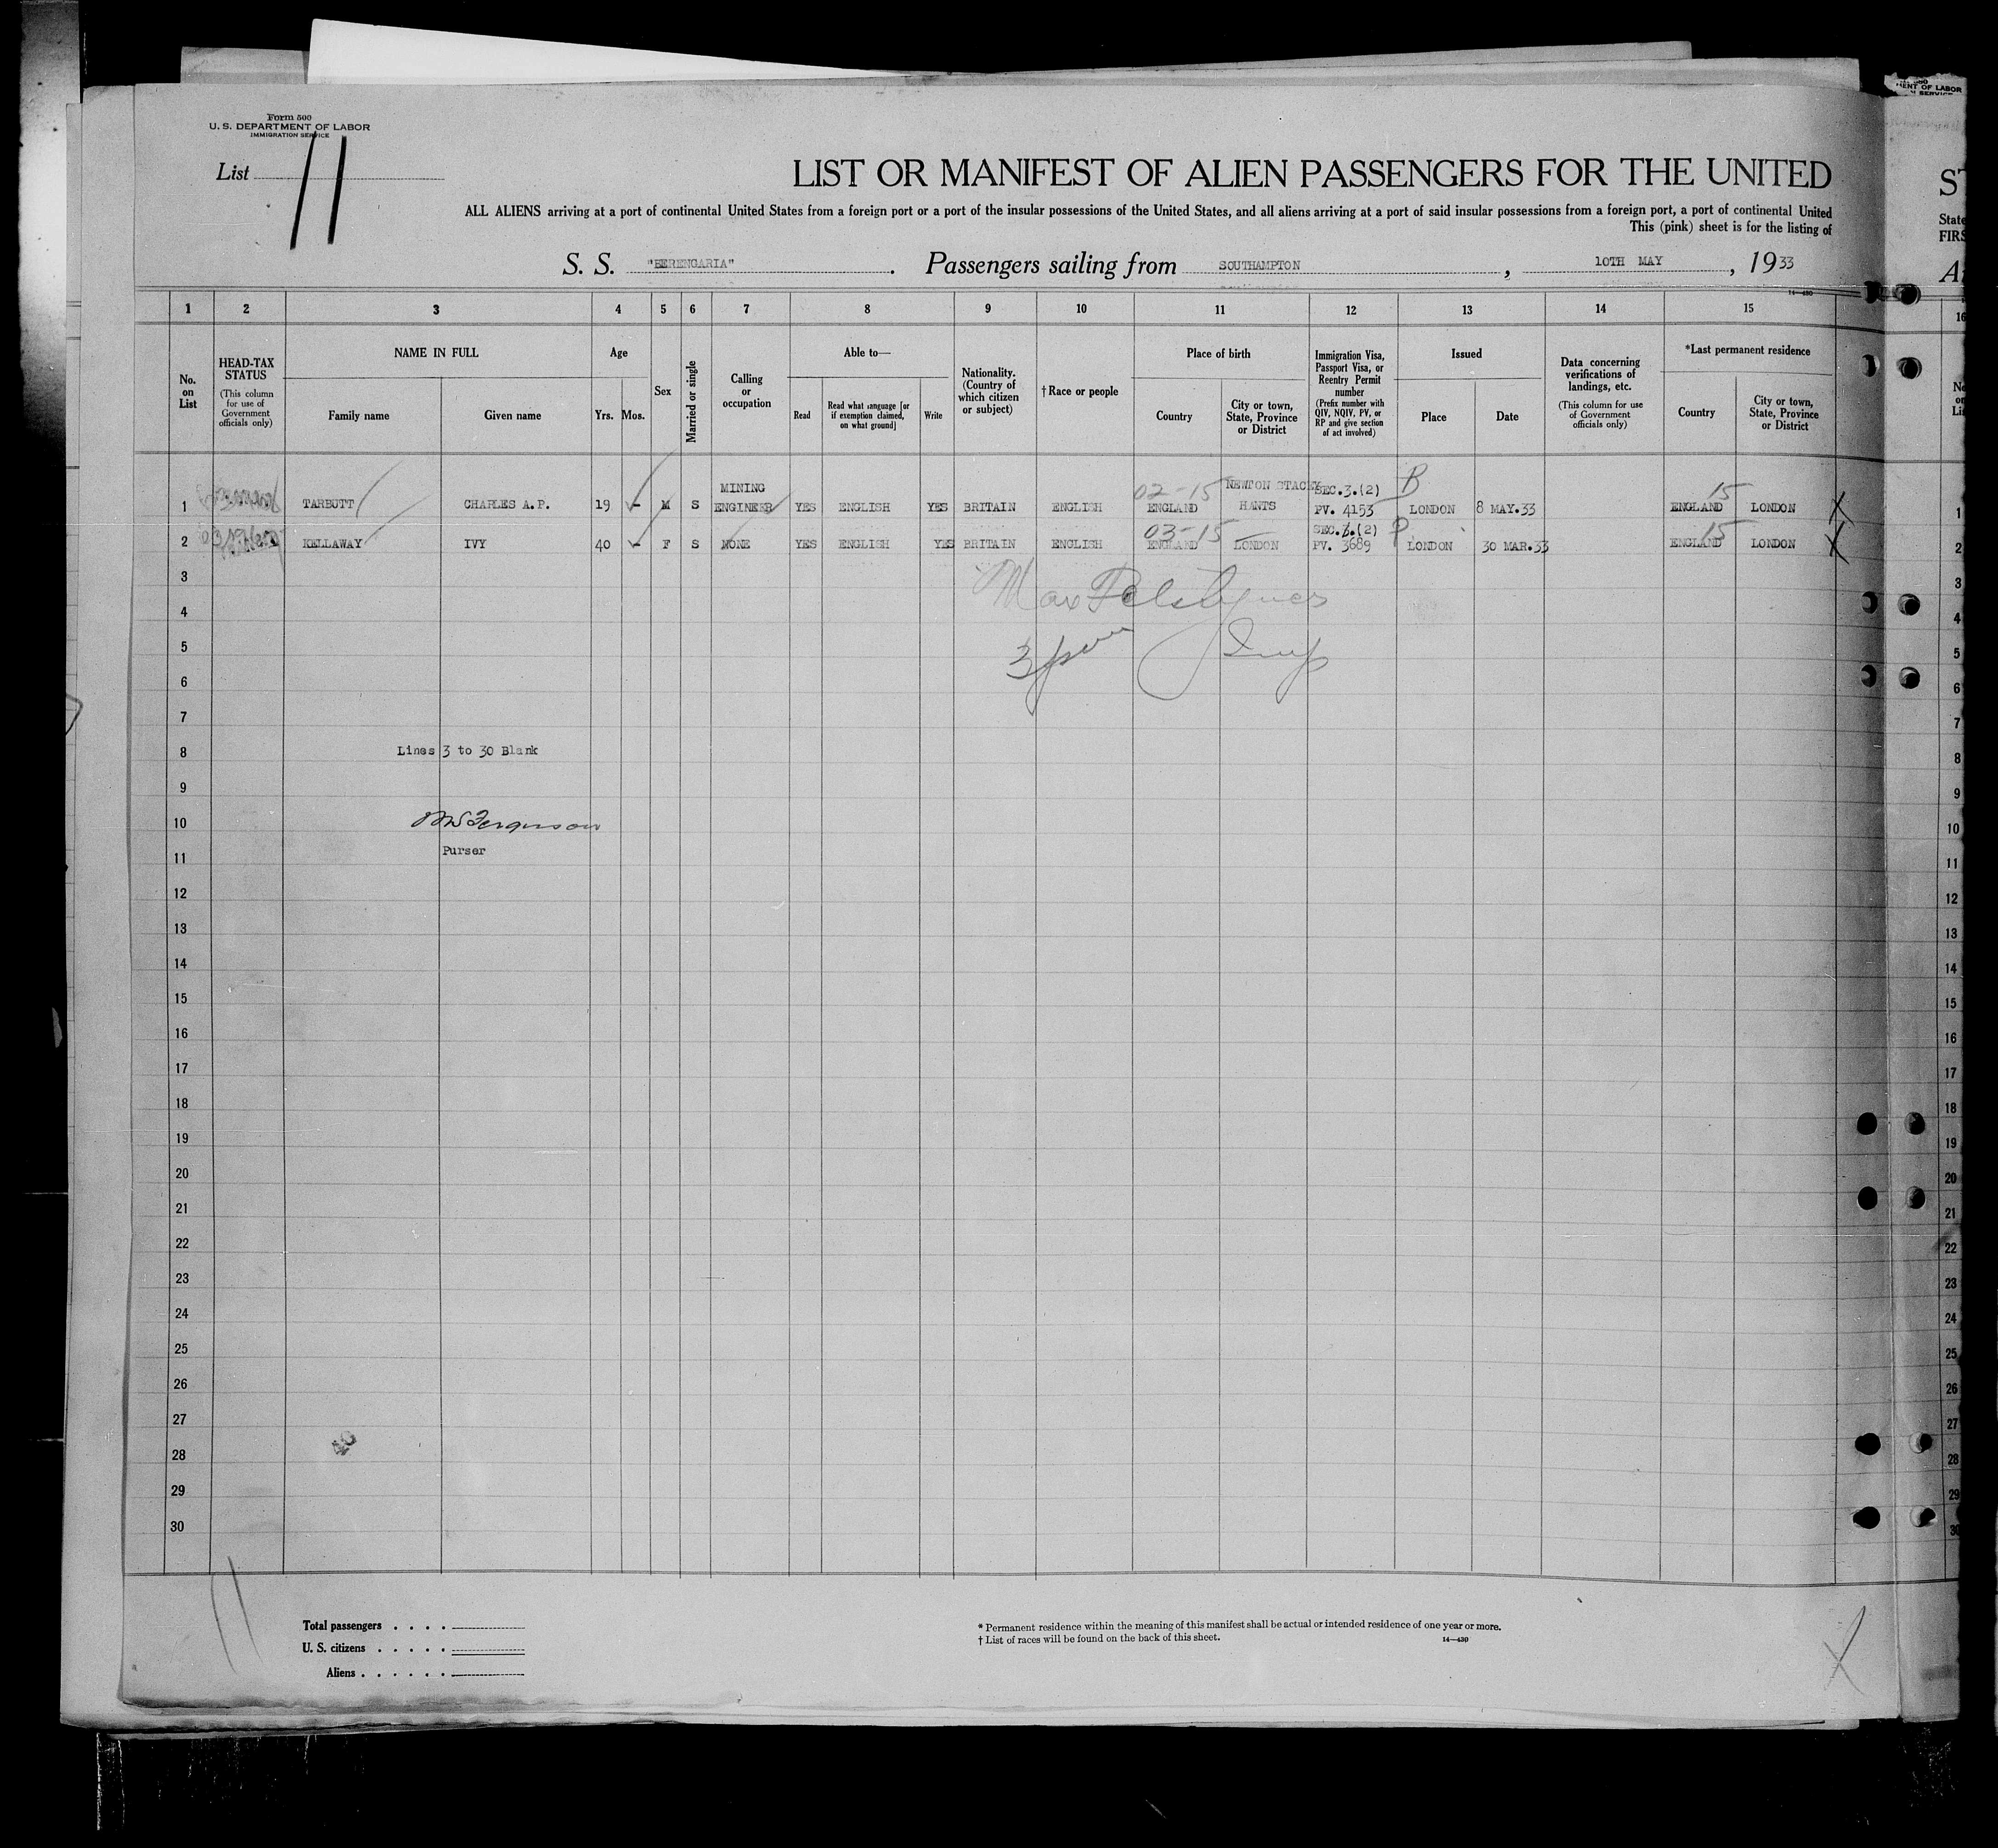 Form 500
U. S. DEPARTMENT OF LABOR
IMMIGRATION SERVICE
List 11
LIST OR MANIFEST OF ALIEN PASSENGERS FOR THE UNITED
ALL ALIENS arriving at a port of continental United States from a foreign port or a port of the insular possessions of the United States, and all aliens arriving at a port of said insular possessions from a foreign port, a port of continental United
This (pink) sheet is for the listing of
S. S. "BERENGARIA". Passengers sailing from SOUTHAMPTON, 10TH MAY, 1933
14—430
1 2 3 4 5 6 7 8 9 10 11 12 13 14 15
No. on List
HEAD-TAX STATUS (This column for use of Government officials only)
NAME IN FULL
Family name
Given name
Age
Yrs. Mos.
Sex
Married or single
Calling or occupation
Able to—
Read
Read what language [or if exemption claimed, on what ground]
Write
Nationality. (Country of which citizen or subject)
†Race or people
Place of birth
Country
City or town, State, Province or District
Immigration Visa, Passport Visa, or Reentry Permit number (Prefix number with QIV, NQIV, PV, or RP and give section of act involved)
Issued
Place
Date
Data concerning verifications of landings, etc. (This column for use of Government officials only)
*Last permanent residence
Country
City or town, State, Province or District
MINING 02-15 NEWTON STACEY SEC.3.(2) B 15
1 TARBUTT CHARLES A.P. 19 - M S ENGINEER YES ENGLISH YES BRITAIN ENGLISH ENGLAND HANTS PV. 4153 LONDON 8 MAY.33 ENGLAND LONDON X 1
03-15 SEC.3.(2) P 15
2 KELLAWAY IVY 40 - F S NONE YES ENGLISH YES BRITAIN ENGLISH ENGLAND LONDON PV. 3689 LONDON 30 MAR.33 ENGLAND LONDON X 2
3 Max 3
4 4
5 5
6 6
7 7
8 Lines 3 to 30 Blank 8
9 9
10 Ferguson 10
11 Purser 11
12 12
13 13
14 14
15 15
16 16
17 17
18 18
19 19
20 20
21 21
22 22
23 23
24 24
25 25
26 26
27 27
28 28
29 29
30 30
11
Total passengers
U. S. citizens
Aliens
* Permanent residence within the meaning of this manifest shall be actual or intended residence of one year or more.
† List of races will be found on the back of this sheet.
14—430
X